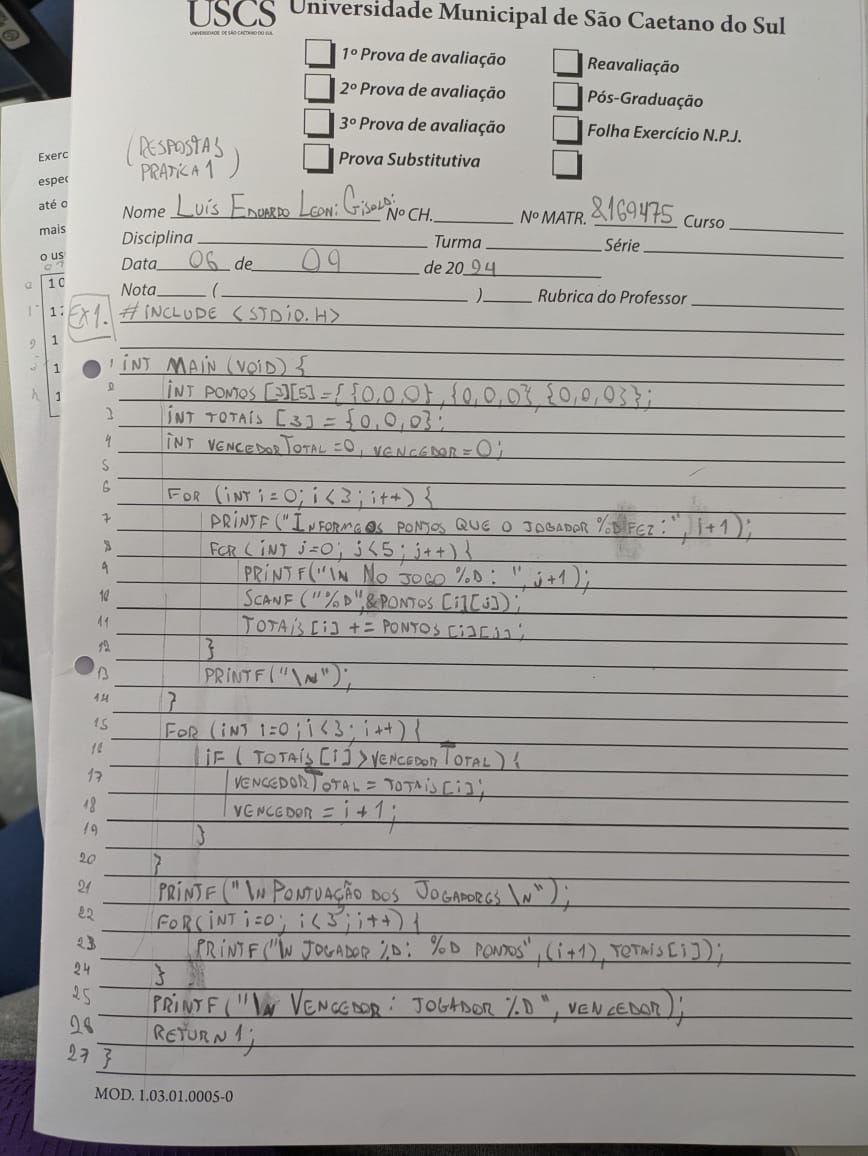 USCS Universidade Municipal de São Caetano do Sul
UNIVERSIDADE DE SÃO CAETANO DO SUL
1º Prova de avaliação Reavaliação
2º Prova de avaliação Pós-Graduação
3º Prova de avaliação Folha Exercício N.P.J.
Prova Substitutiva
(RESPOSTAS
PRATICA 1)
Exerc
espec
até o
mais
o us
Nome LUIS EDUARDO LEONI Nº CH. Nº MATR. 8169475 Curso
Disciplina Turma Série
Data 06 de 09 de 2024
Nota ( ) Rubrica do Professor
EX1. #INCLUDE <STDIO.H>
1 INT MAIN (VOID) {
2 INT PONTOS [3][5]={{0,0,0},{0,0,0},{0,0,0}};
3 INT TOTAIS [3] = {0,0,0};
4 INT VENCEDORTOTAL=0, VENCEDOR=0;
5
6 FOR (INT i=0; i<3; i++) {
7 PRINTF("INFORME OS PONTOS QUE O JOGADOR %D FEZ:", i+1);
8 FOR (INT j=0; j<5; j++) {
9 PRINTF("\N NO JOGO %D: ", j+1);
10 SCANF ("%D",&PONTOS [i][j]);
11 TOTAIS [i] += PONTOS [i][j];
12 }
13 PRINTF("\N");
14 }
15 FOR (INT i=0; i<3; i++) {
16 IF ( TOTAIS [i] > VENCEDORTOTAL) {
17 VENCEDORTOTAL = TOTAIS [i];
18 VENCEDOR = i+1;
19 }
20 }
21 PRINTF("\N PONTUAÇÃO DOS JOGADORES \N");
22 FOR(INT i=0; i<3; i++) {
23 PRINTF("\N JOGADOR %D: %D PONTOS",(i+1),TOTAIS[i]);
24 }
25 PRINTF("\N VENCEDOR: JOGADOR %D", VENCEDOR);
26 RETURN 1;
27 }
MOD. 1.03.01.0005-0